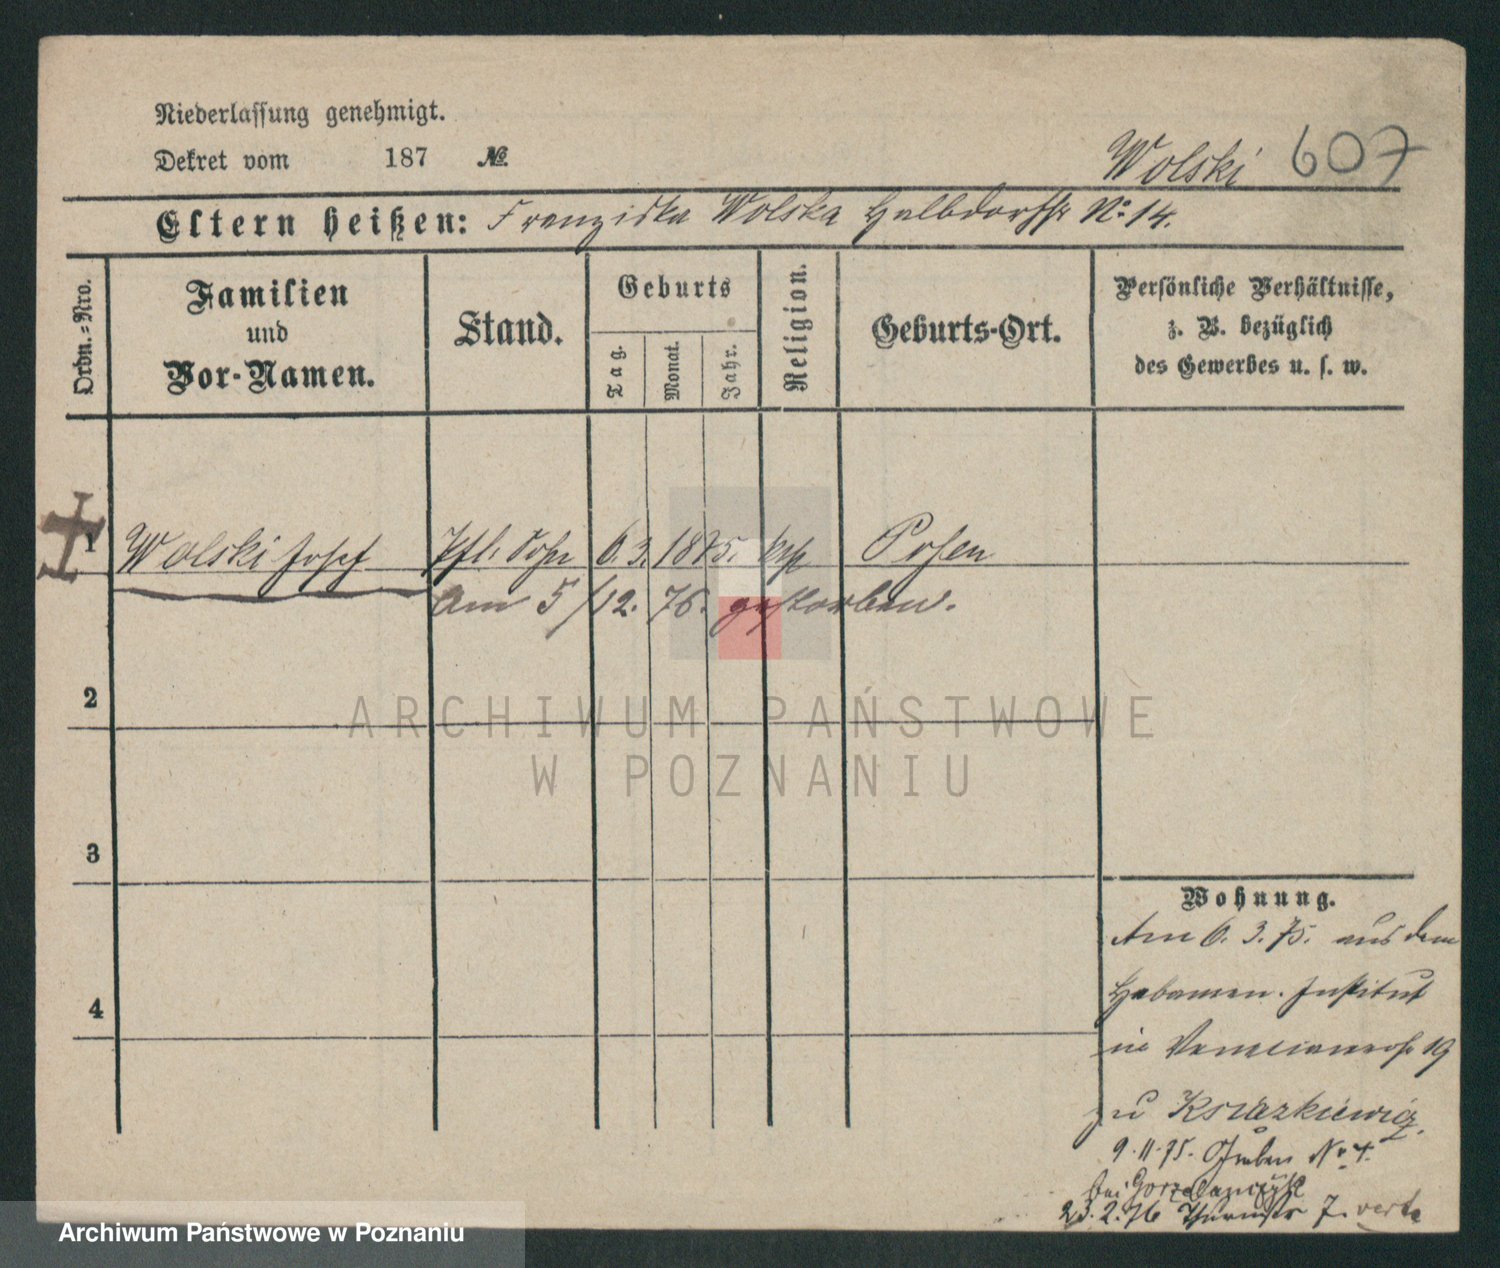 Niederlassung genehmigt.
Dekret vom 187 №
Wolski 607
Eltern heißen: Franziska Wolska Halbdorfstr No 14.
Ordn.=Nro.
Familien
und
Vor-Namen.
Stand.
Geburts
Tag.
Monat.
Jahr.
Religion.
Geburts-Ort.
Persönliche Verhältnisse,
z. B. bezüglich
des Gewerbes u. s. w.
1 Wolski Josef Pfl. Sohn 6. 3. 1875. kth Posen
Am 5/12. 76. gestorben.
2
3
4
Wohnung.
Am 6. 3. 75. aus dem
Hebammen. Institut
in 19
zu Książkiewicz.
9.11.75. Graben No 4.
bei
23.2.76 Thurmstr 7. verte
ARCHIWUM PAŃSTWOWE
W POZNANIU
Archiwum Państwowe w Poznaniu